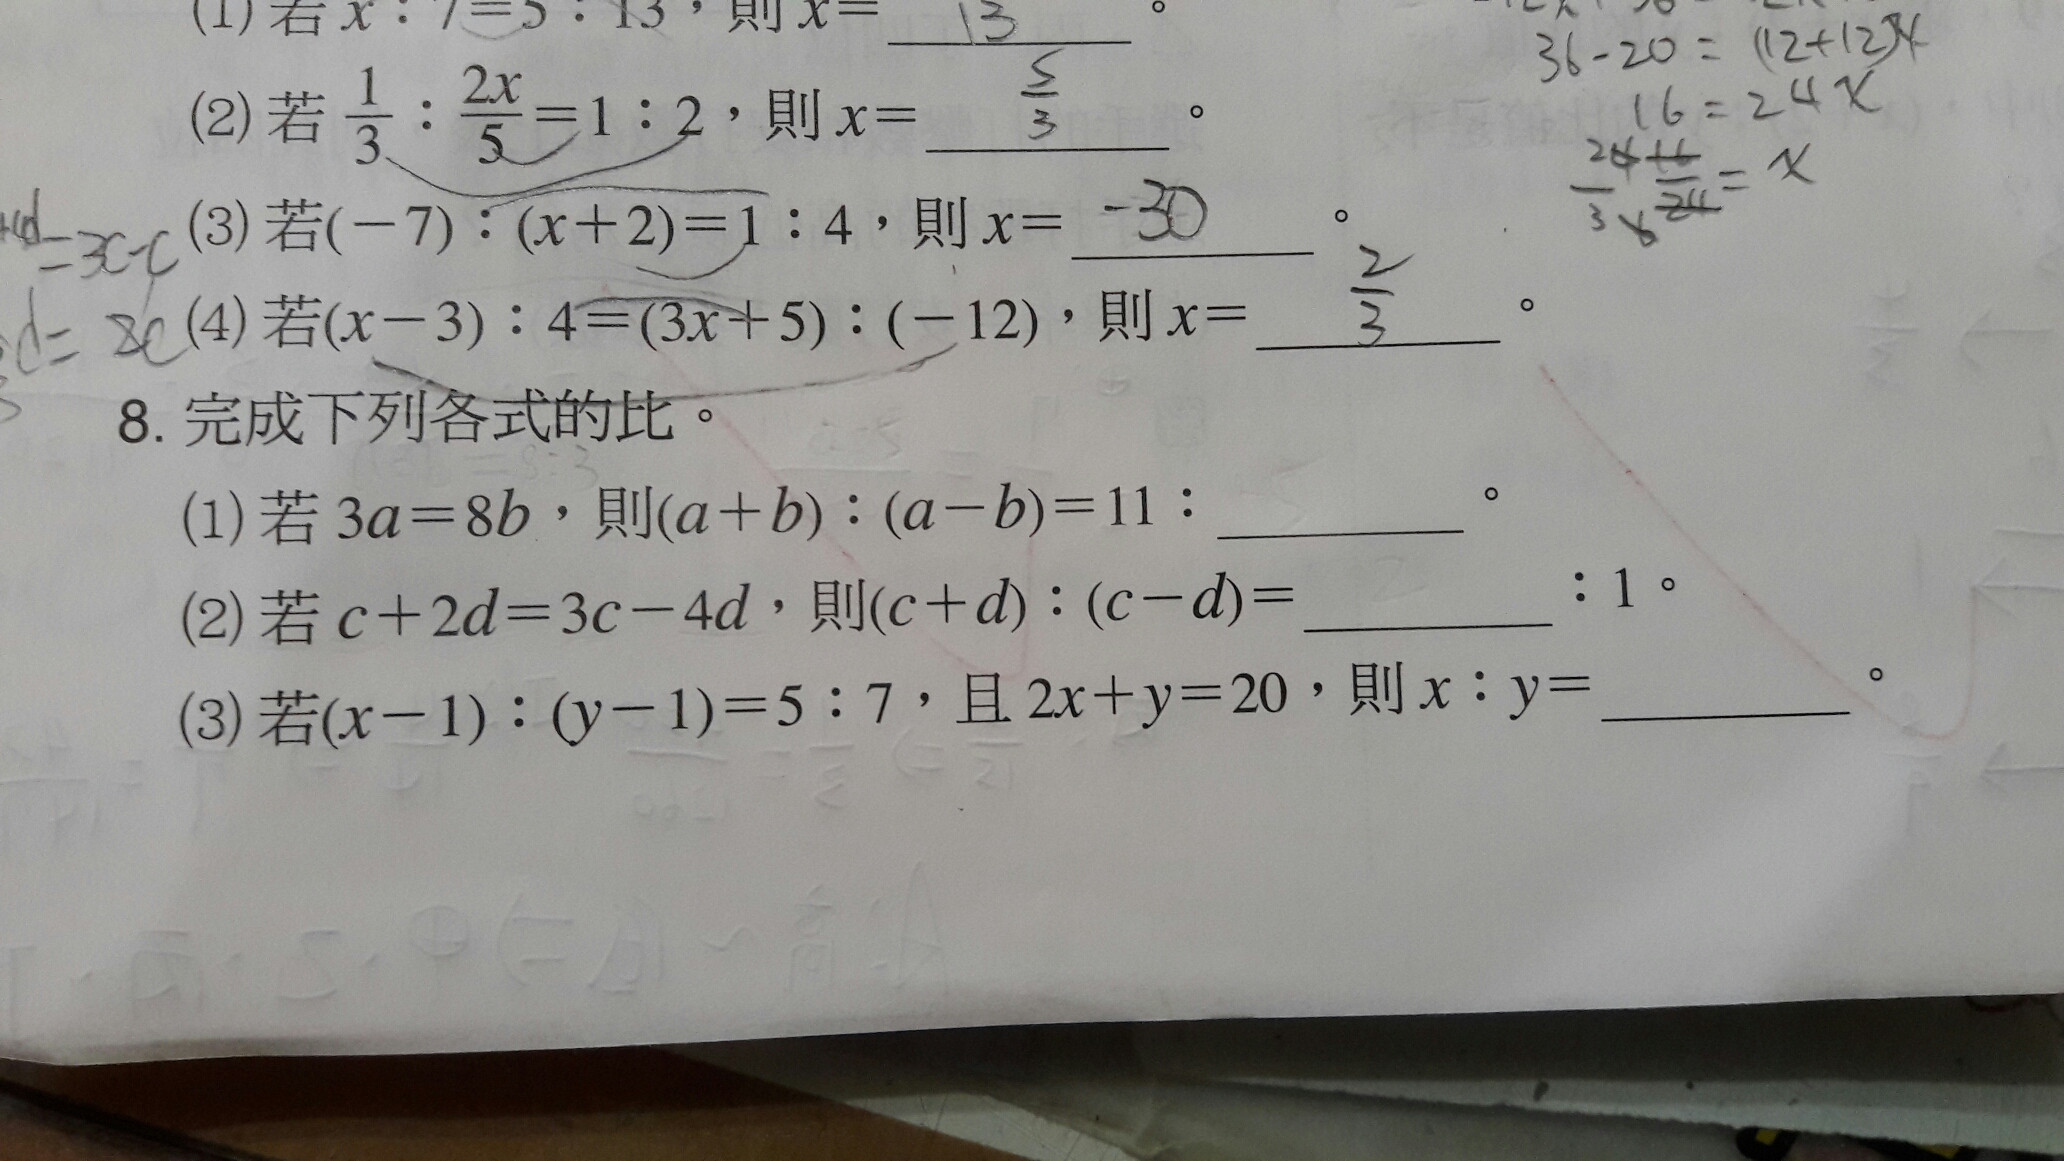 (1) 若 x：7=5：13，則 x= 13 。
(2) 若 1/3：2x/5=1：2，則 x= 5/3 。
(3) 若(－7)：(x+2)=1：4，則 x= -30 。
(4) 若(x－3)：4=(3x+5)：(－12)，則 x= 2/3 。
8. 完成下列各式的比。
(1) 若 3a=8b，則(a+b)：(a－b)=11：______。
(2) 若 c+2d=3c－4d，則(c+d)：(c－d)=______：1。
(3) 若(x－1)：(y－1)=5：7，且 2x+y=20，則 x：y=______。
36-20 = (12+12)x
16 = 24x
= x
=3c-c
d= 2c